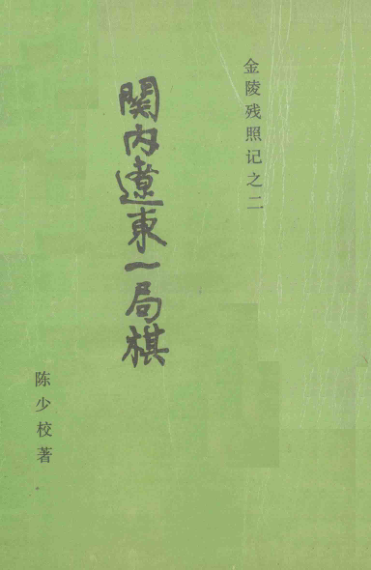 金陵残照记之二
関内遼東一局棋
陈少校著